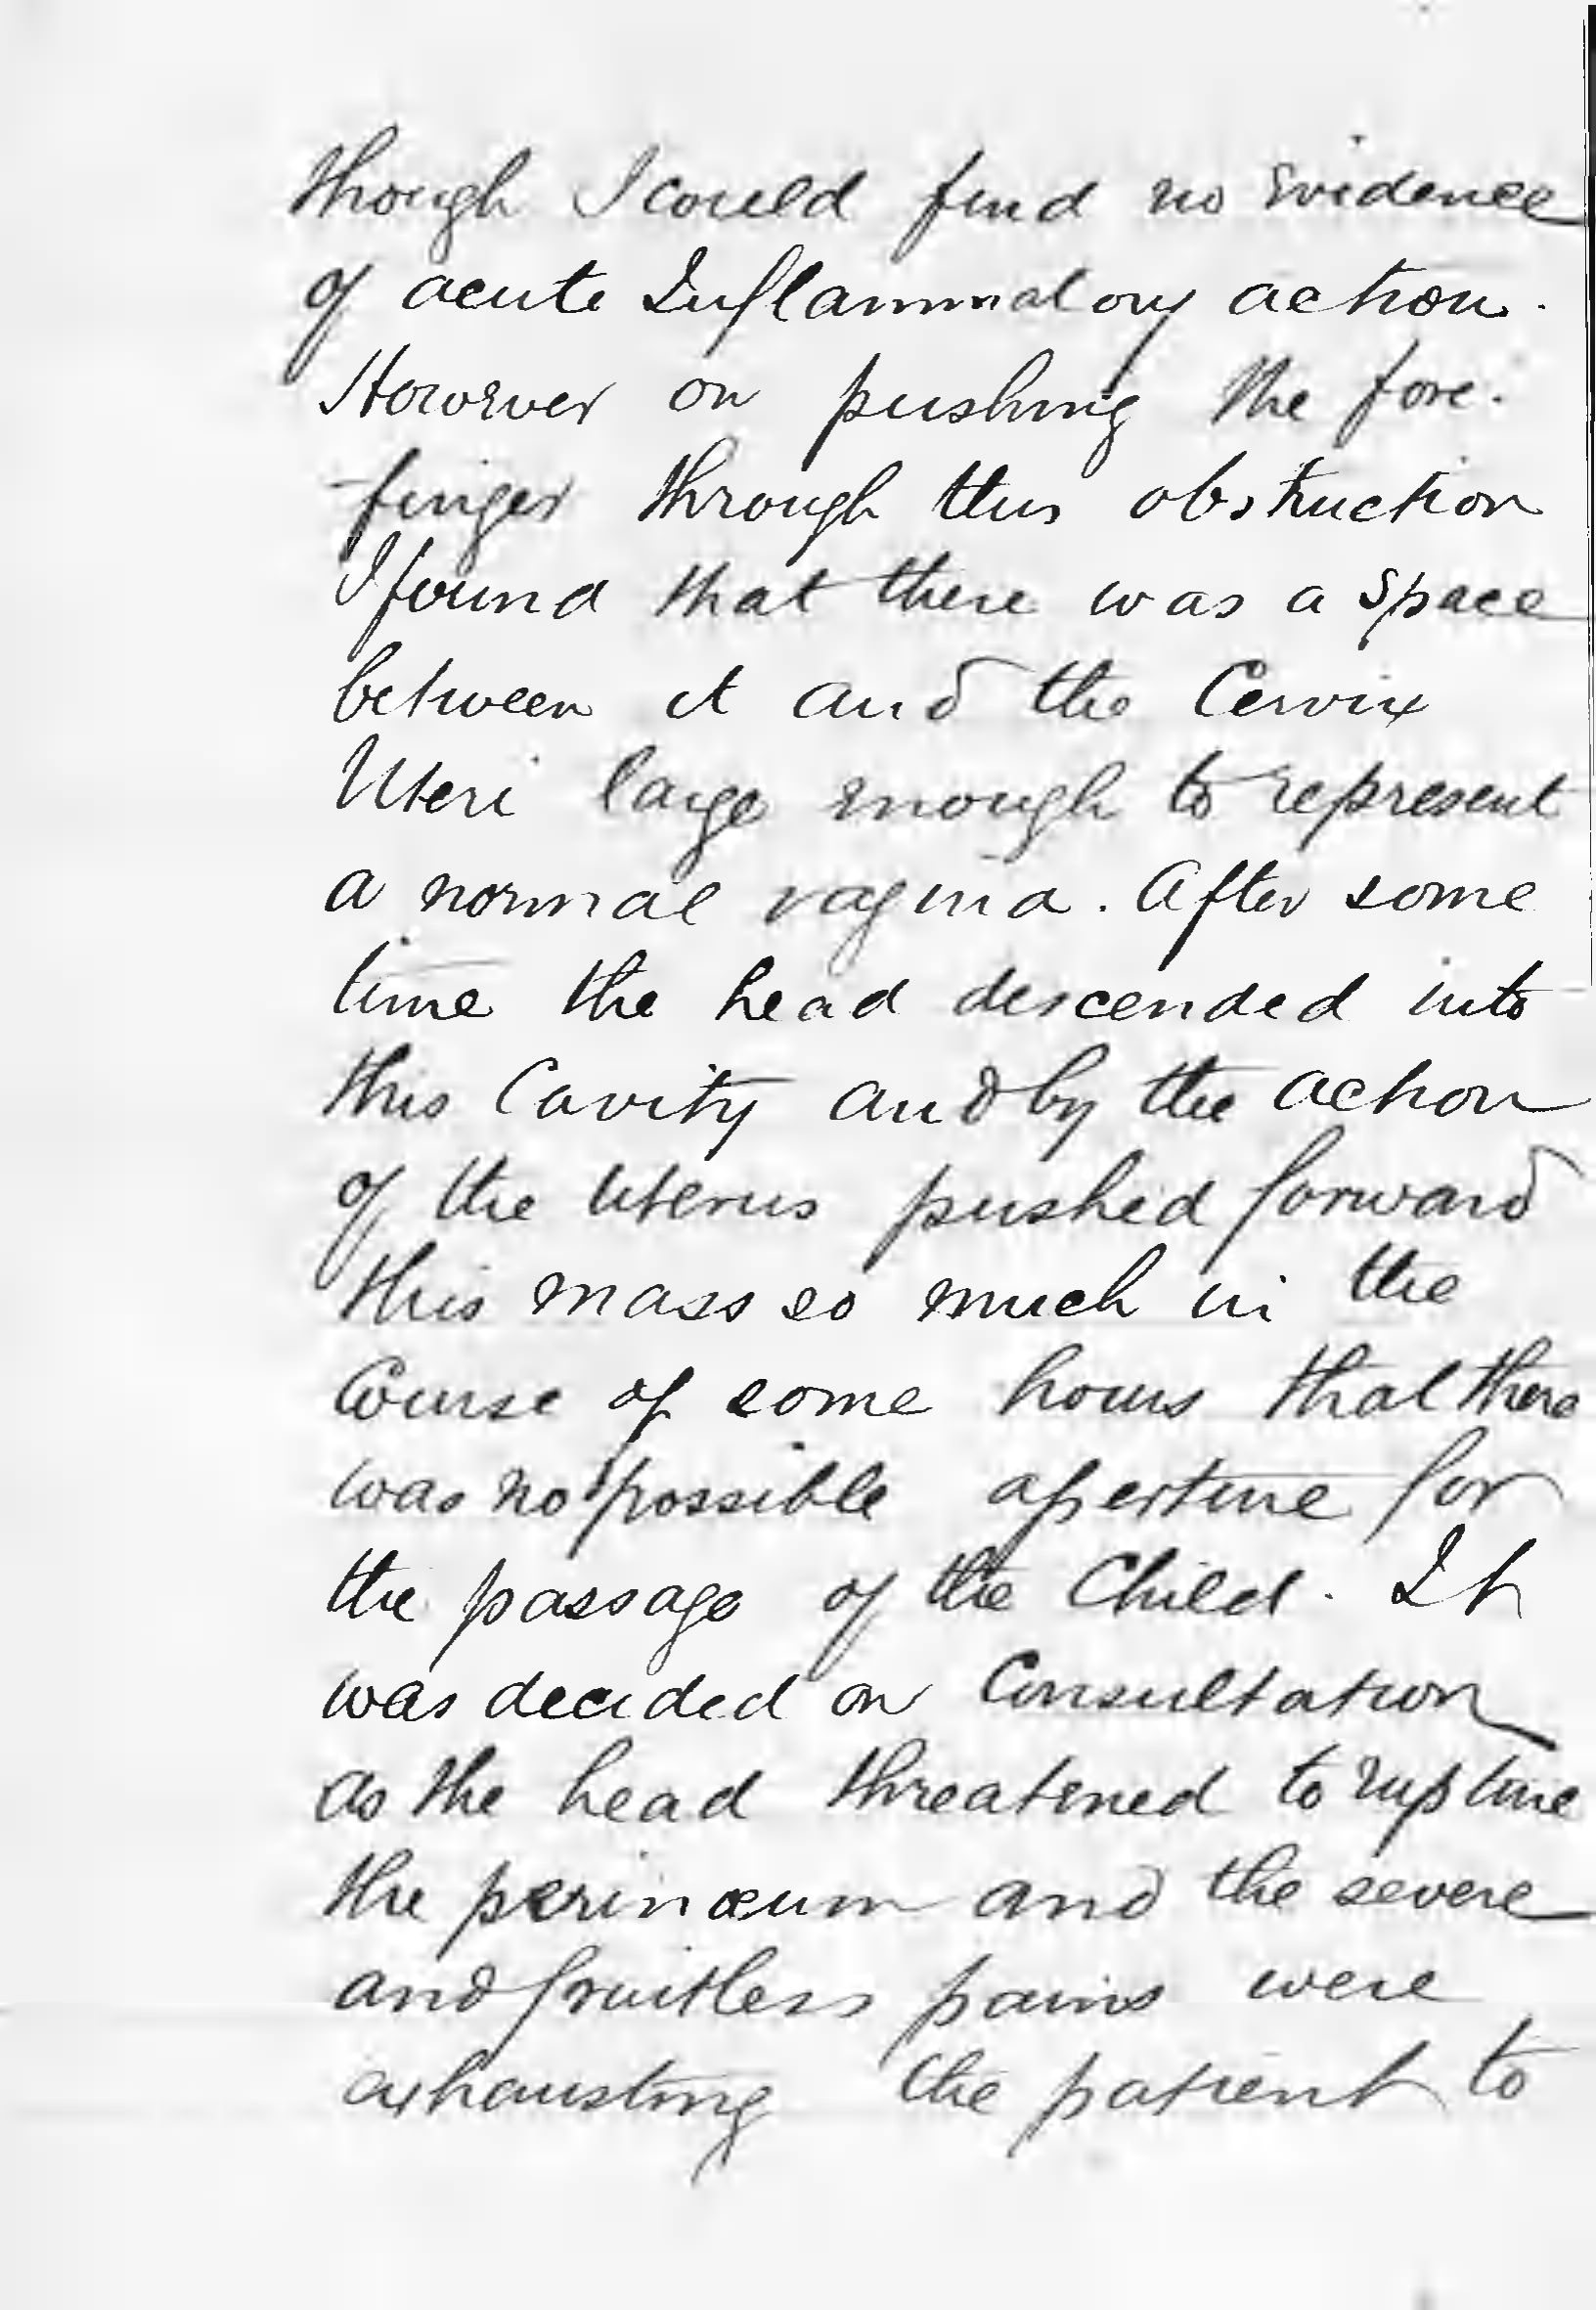 though I could find no evidence
of acute Inflammatory action.
However on pushing the fore-
finger through this obstruction
I found that there was a space
between it and the Cervix
Uteri large enough to represent
a normal vagina. After some
time the head descended into
this Cavity and by the action
of the uterus pushed forward
this mass so much in the
Course of some hours that there
was no possible aperture for
the passage of the Child. It
was decided on Consultation
as the head threatened to rupture
the perinæum and the severe
and fruitless pains were
exhausting the patient to